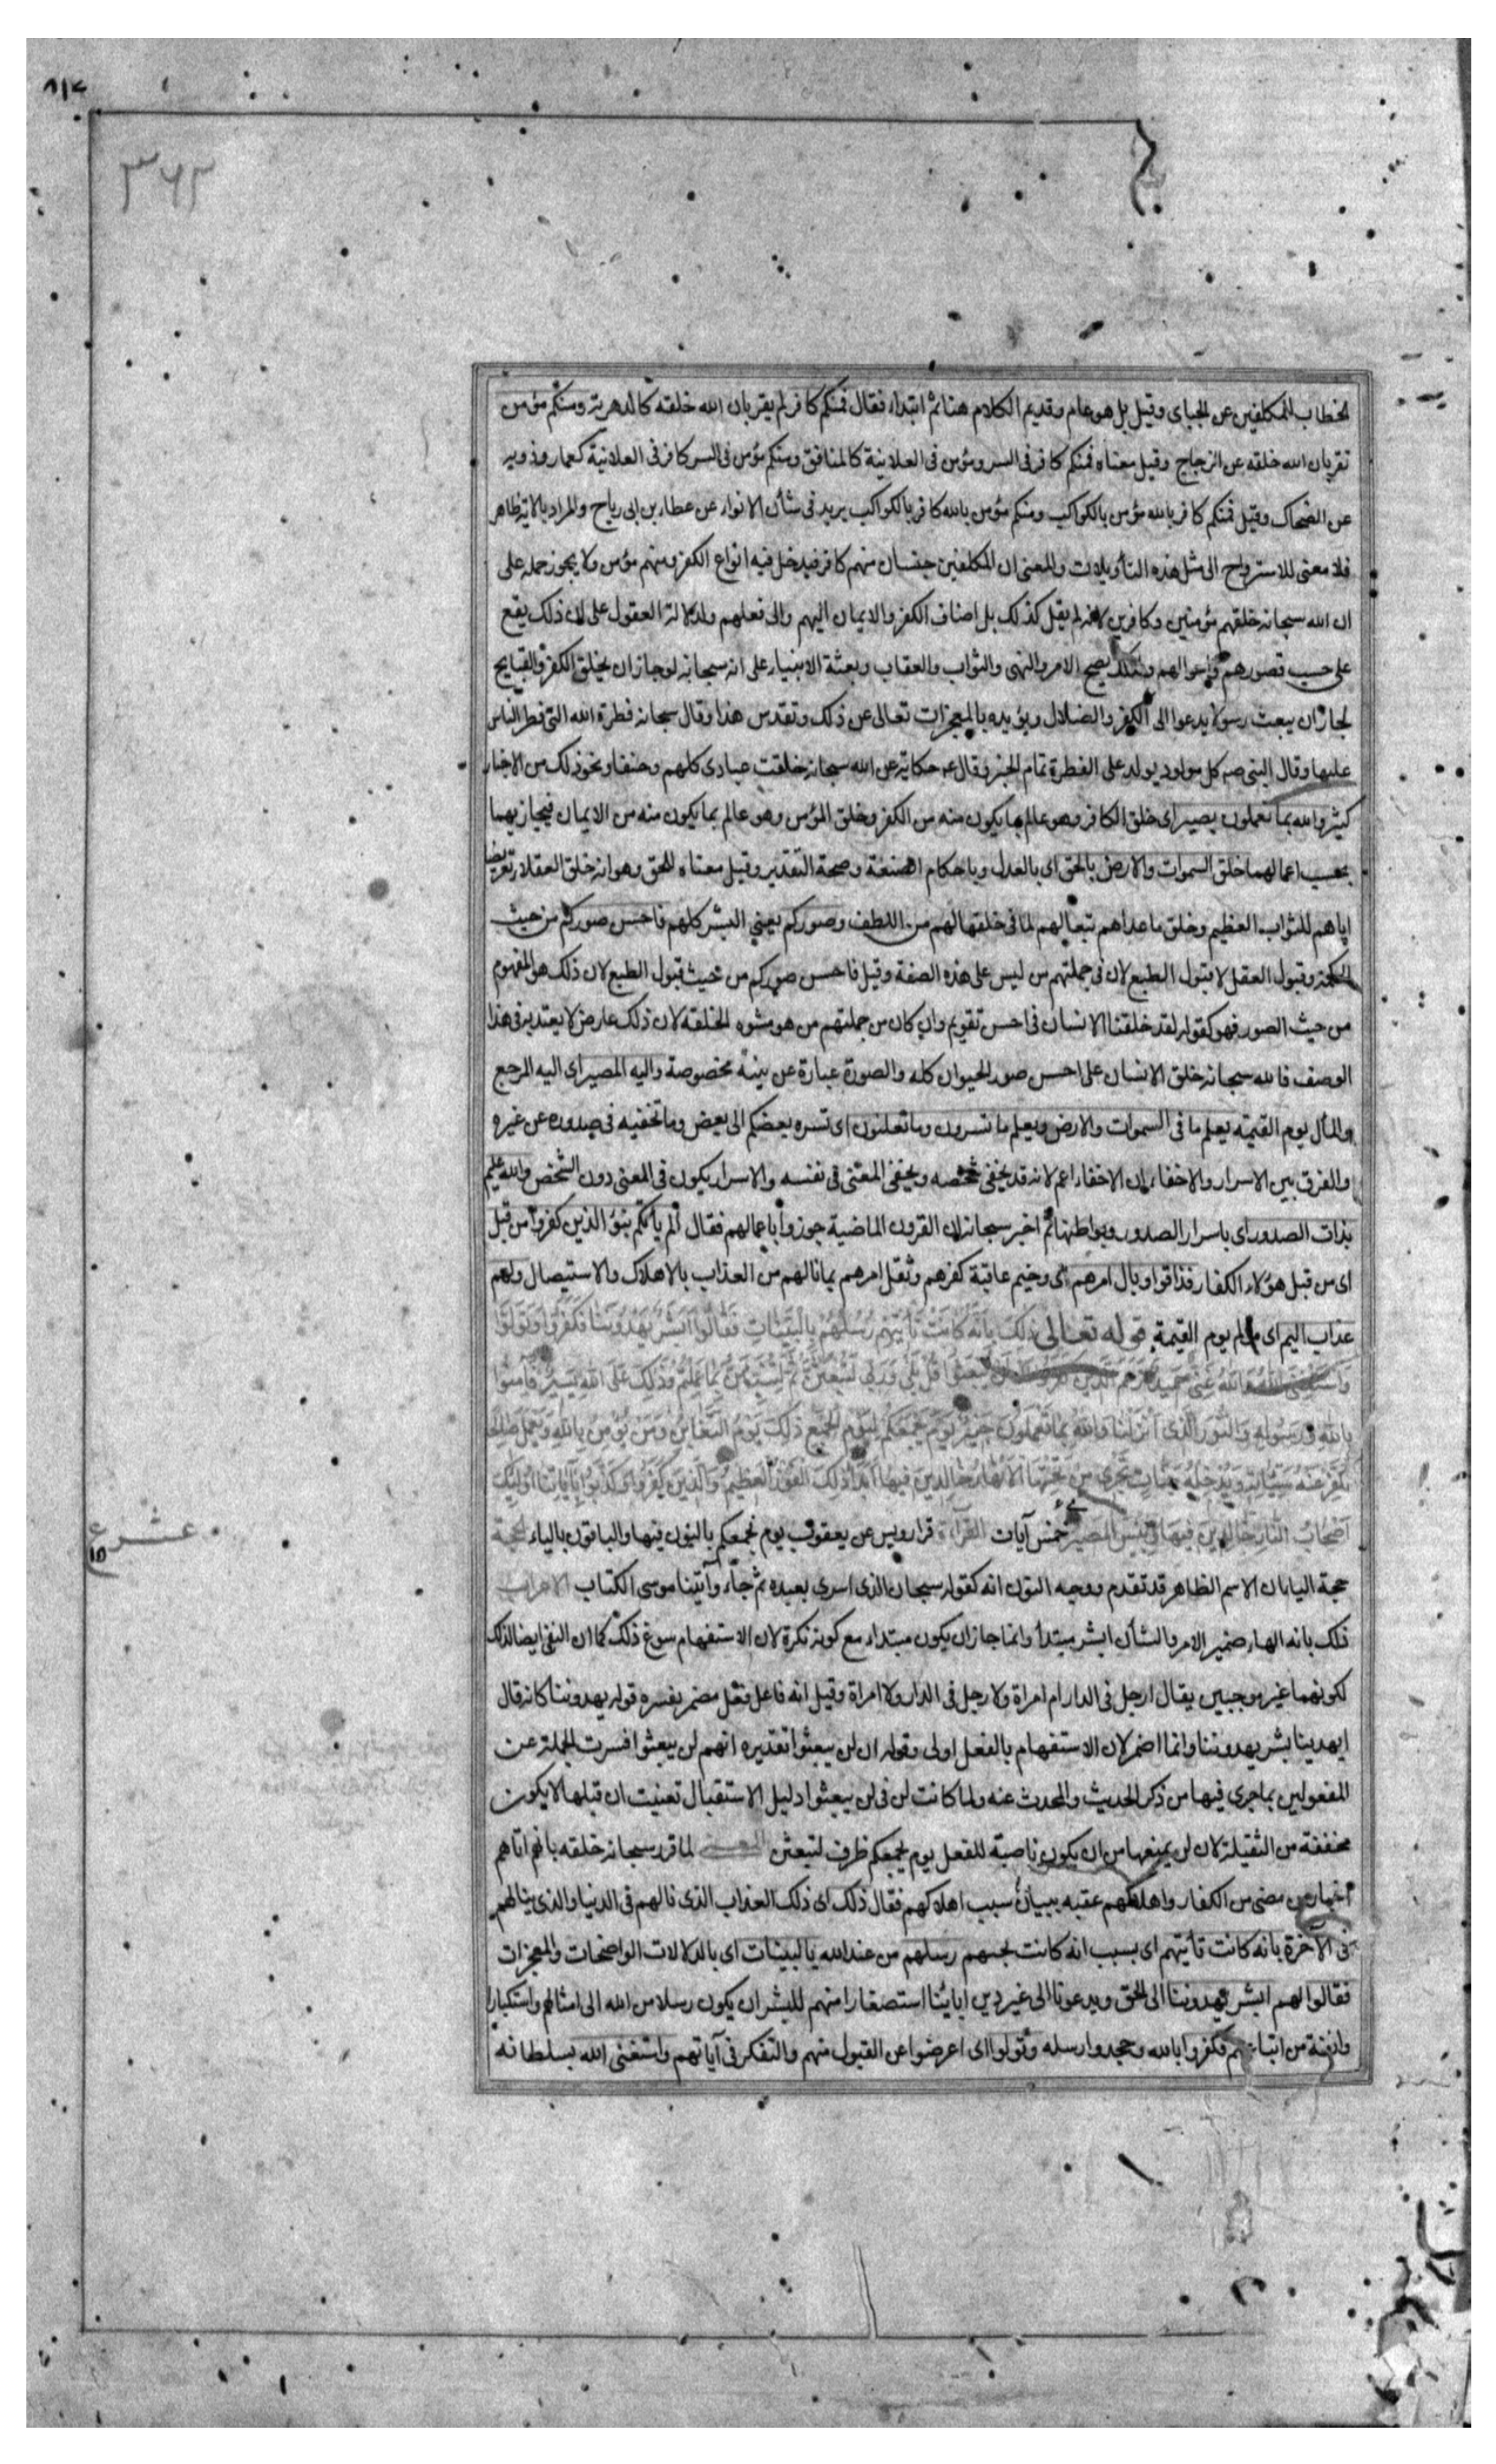 ٨١٤
٣٦٢
الخطاب للمكلفين عن الجبای وقیل بل هو عام وقدیم الکلام هنا ثم ابتداء فقال فمنکم کافر لم یقر بان الله خلقه کالدهریة ومنکم مؤمن
تقر بان الله خلقه عن الزجاج وقیل معناه فمنکم کافر فی السر ومؤمن فی العلانیة کالمنافق ومنکم مؤمن فی السر کافر فی العلانیة کعمار وذویه
عن الضحاک وقیل فمنکم کافر بالله مؤمن بالکواکب ومنکم مؤمن بالله کافر بالکواکب یرید فی شأن الانواء عن عطاء بن ابی ریاح والمراد بالایة ظاهر
فلا معنی للاسترواح الی مثل هذه التأویلات والمعنی ان المکلفین جنسان منهم کافر فیدخل فیه انواع الکفر ومنهم مؤمن ولا یجوز حمله علی
ان الله سبحانه خلقهم مؤمنین وکافرین لانه لم یقل کذلک بل اضاف الکفر والایمان الیهم والی فعلهم ولدلالة العقول علی ان ذلک یقع
علی حسب قصورهم واحوالهم ولذلک یصح الامر والنهی والثواب والعقاب وبعثة الانبیاء علی انه سبحانه لو جاز ان یخلق الکفر والقبایح
لجاز ان یبعث رسولا یدعوا الی الکفر والضلال ویؤیده بالمعجزات تعالی عن ذلک وتقدس هذا وقال سبحانه فطرة الله التی فطر الناس
علیها وقال النبی صه کل مولود یولد علی الفطرة تمام الخبر وقال عه حکایة عن الله سبحانه خلقت عبادی کلهم حنفا ونحو ذلک من الاخبار
کثیر والله بما تعملون بصیر ای خلق الکافر وهو عالم بما یکون منه من الکفر وخلق المؤمن وهو عالم بما یکون منه من الایمان فیجازیهما
بحسب اعمالهما خلق السموات والارض بالحق ای بالعدل وباحکام الصنعة وصحة التقدیر وقیل معناه للحق وهو انه خلق العقلاء تعریضا
ایاهم للثواب العظیم وخلق ما عداهم تبعا لهم لما فی خلقها لهم من اللطف وصورکم یعنی البشر کلهم فاحسن صورکم من حیث
الحکمة وقبول العقل لا قبول الطبع لان فی جملتهم من لیس علی هذه الصفة وقیل فاحسن صورکم من حیث قبول الطبع لان ذلک هو المفهوم
من حیث الصور فهو کقوله لقد خلقنا الانسان فی احسن تقویم وان کان من جملتهم من هو مشوه الخلقة لان ذلک عارض لا یعتد به فی هذا
الوصف فالله سبحانه خلق الانسان علی احسن صور الحیوان کله والصورة عبارة عن بنیة مخصوصة والیه المصیر ای الیه المرجع
والمأل یوم القیمة یعلم ما فی السموات والارض ویعلم ما تسرون وما تعلنون ای تسره بعضکم الی بعض وما تخفیه فی صدوره عن غیره
والفرق بین الاسرار والاخفاء ان الاخفاء اعم لانه قد یخفی شخصه ویخفی المعنی فی نفسه والاسرار یکون فی المعنی دون الشخص والله علیم
بذات الصدور ای باسرار الصدور وبواطنها ثم اخبر سبحانه ان القرون الماضیة جوزوا باعمالهم فقال الم یأتکم نبؤ الذین کفروا من قبل
ای من قبل هؤلاء الکفار فذاقوا وبال امرهم ای وخیم عاقبة کفرهم وثقل امرهم بما نالهم من العذاب بالاهلاک والاستیصال ولهم
عذاب الیم ای مؤلم یوم القیمة قوله تعالی ذلک بانه کانت تأتیهم رسلهم بالبینات فقالوا ابشر یهدوننا فکفروا وتولوا
واستغنی الله والله غنی حمید زعم الذین کفروا ان لن یبعثوا قل بلی وربی لتبعثن ثم لتنبؤن بما عملتم وذلک علی الله یسیر فآمنوا
بالله ورسوله والنور الذی انزلنا والله بما تعملون خبیر یوم یجمعکم لیوم الجمع ذلک یوم التغابن ومن یؤمن بالله ویعمل صالحا
یکفر عنه سیئاته ویدخله جنات تجری من تحتها الانهار خالدین فیها ابدا ذلک الفوز العظیم والذین کفروا وکذبوا بآیاتنا اولئک
اصحاب النار خالدین فیها وبئس المصیر خمس آیات القرآءة قرا رویس عن یعقوب یوم نجمعکم بالنون فیها والباقون بالیاء الحجة
حجة الیا بان الاسم الظاهر قد تقدم ووجه النون انه کقوله سبحان الذی اسری بعبده ثم جاء وآتینا موسی الکتاب الاعراب
ذلک بانه الهاء ضمیر الامر والشأن ابشر مبتدأ وانما جاز ان یکون مبتداء مع کونه نکرة لان الاستفهام سوغ ذلک کما ان النفی ایضا لذلک
لکونهما غیر موجبین یقال ارجل فی الدار ام امراة ولا رجل فی الدار ولا امراة وقیل انه فاعل فعل مضمر یفسره قوله یهدوننا کانه قال
ایهدینا بشر یهدوننا وانما اضمر لان الاستفهام بالفعل اولی وقوله ان لن یبعثوا تقدیره انهم لن یبعثوا فسرت الجملة عن
المفعولین بما جری فیها من ذکر الحدیث والمحدث عنه ولما کانت لن فی لن یبعثوا دلیل الاستقبال تعینت ان قبلها الا یکون
مخففة من الثقیلة لان لن یمنعها من ان یکون ناصبة للفعل یوم یجمعکم ظرف لتبعثن المعنی لما قرر سبحانه خلقه بانهم اتاهم
اخبار من مضی من الکفار واهلاکهم عقبه ببیان سبب اهلاکهم فقال ذلک ای ذلک العذاب الذی نالهم فی الدنیا والذی ینالهم
فی الآخرة بانه کانت تأتیهم ای بسبب انه کانت تجیهم رسلهم من عند الله بالبینات ای بالدلالات الواضحات والمعجزات
فقالوا لهم ابشر یهدوننا الی الحق ویدعونا الی غیر دین ابائنا استصغارا منهم للبشر ان یکون رسلا من الله الی امثالهم واستکبارا
وانفة من اتباعهم فکفروا بالله وجحدوا رسله وتولوا ای اعرضوا عن القبول منهم والتفکر فی آیاتهم واستغنی الله بسلطانه
عشر